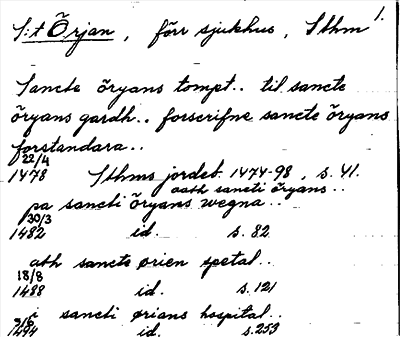 S:t Örjan, förr sjukhus, Sthm 1.
Sancte öryans tompt.. til sancte
öryans gardh.. forscrifne sancte öryans
forstandara..
22/4
1478 Sthms jordeb. 1474-98, s. 41.
oath sancti öryans..
pa sancti öryans wegna..
30/3
1482 id. s. 82
ath sancte ørien spetal..
18/8
1488 id. s. 121
i sancti ørians hospital..
1494 id. s. 253